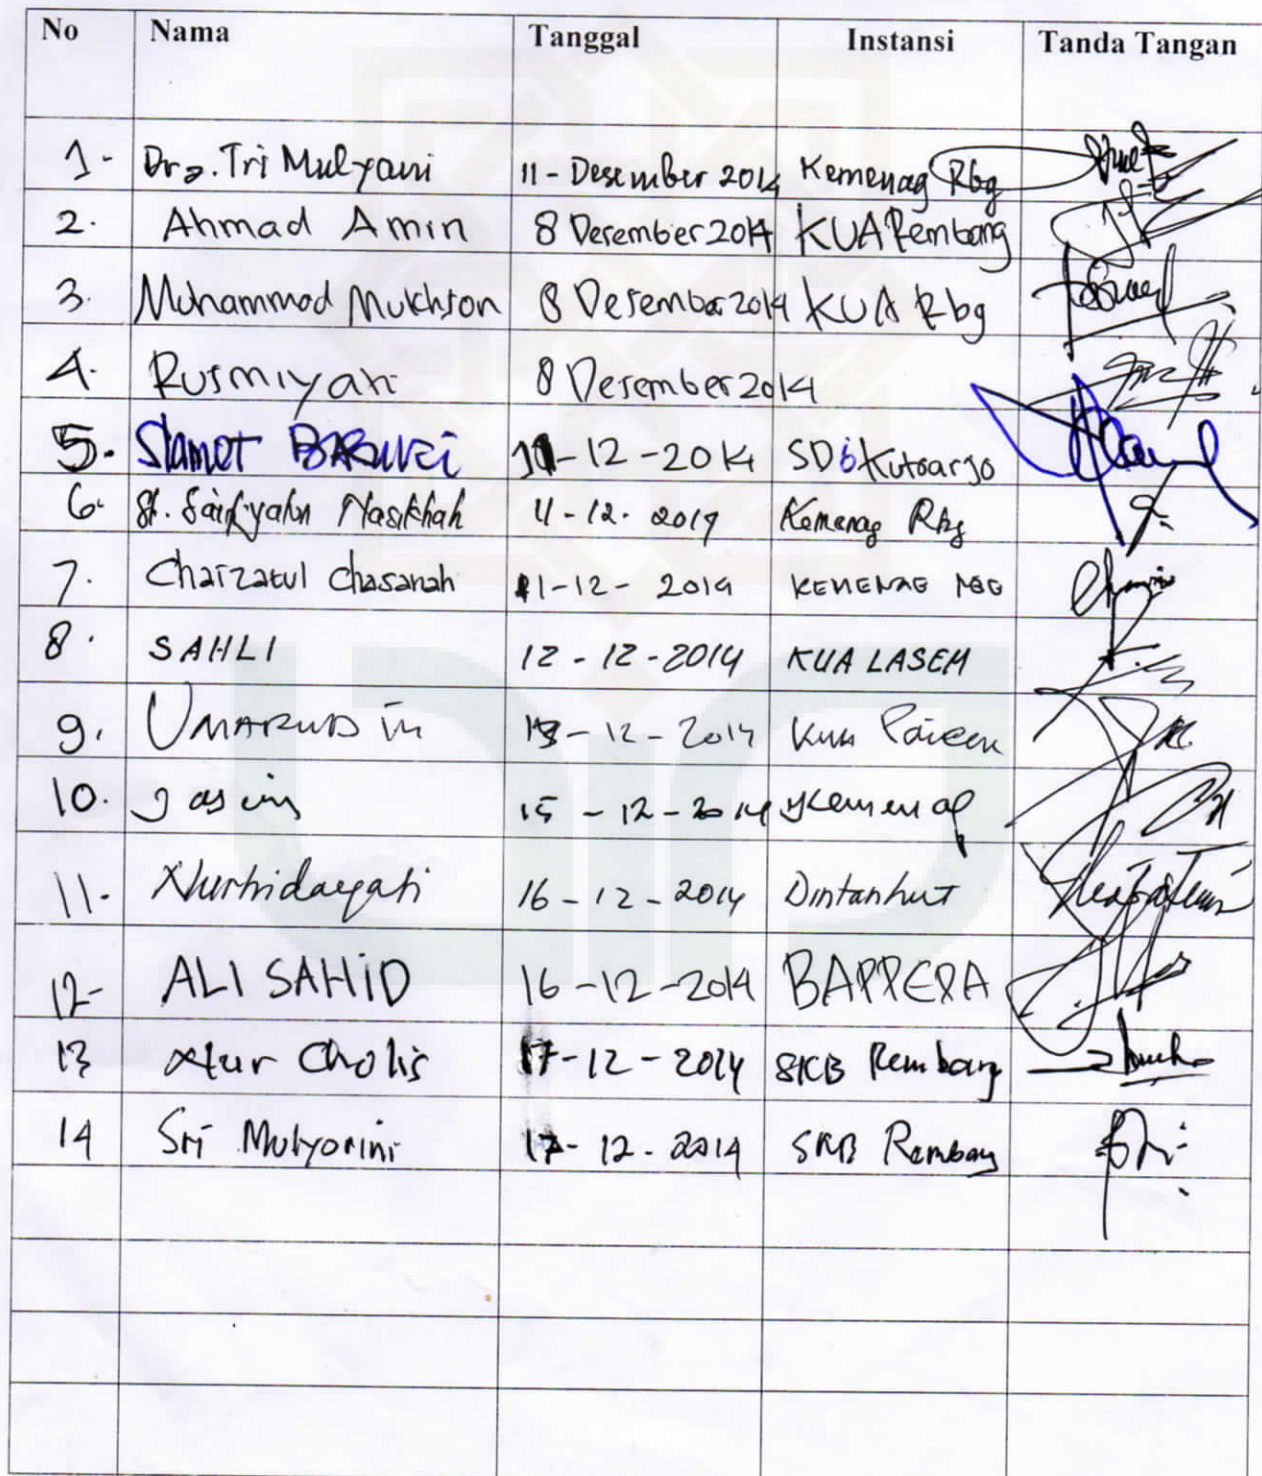 No Nama Tanggal Instansi Tanda Tangan
1- Dra. Tri Mulyani 11 - Desember 2014 Kemenag Rbg
2. Ahmad Amin 8 Desember 2014 KUA Rembang
3. Muhammad Mukhson 8 Desember 2014 KUA Rbg
4. Rusmiyati 8 Desember 2014
5. Slamet 11-12-2014 SD 6 Kutoarjo
6. Nasikhah 11-12-2014 Kemenag Rbg
7. Chaizatul Chasanah 11-12-2014 KEMENAG RBG
8. SAHLI 12-12-2014 KUA LASEM
9. UMARUDin 13-12-2014 KUA
10. Jasim 15-12-2014 Kemenag
11. Nurhidayati 16-12-2014 Dintanhut
12- ALI SAHiD 16-12-2014 BAPPEDA
13 Nur Cholis 17-12-2014 SKB Rembang
14 Sri Mulyorini 17-12-2014 SKB Rembang